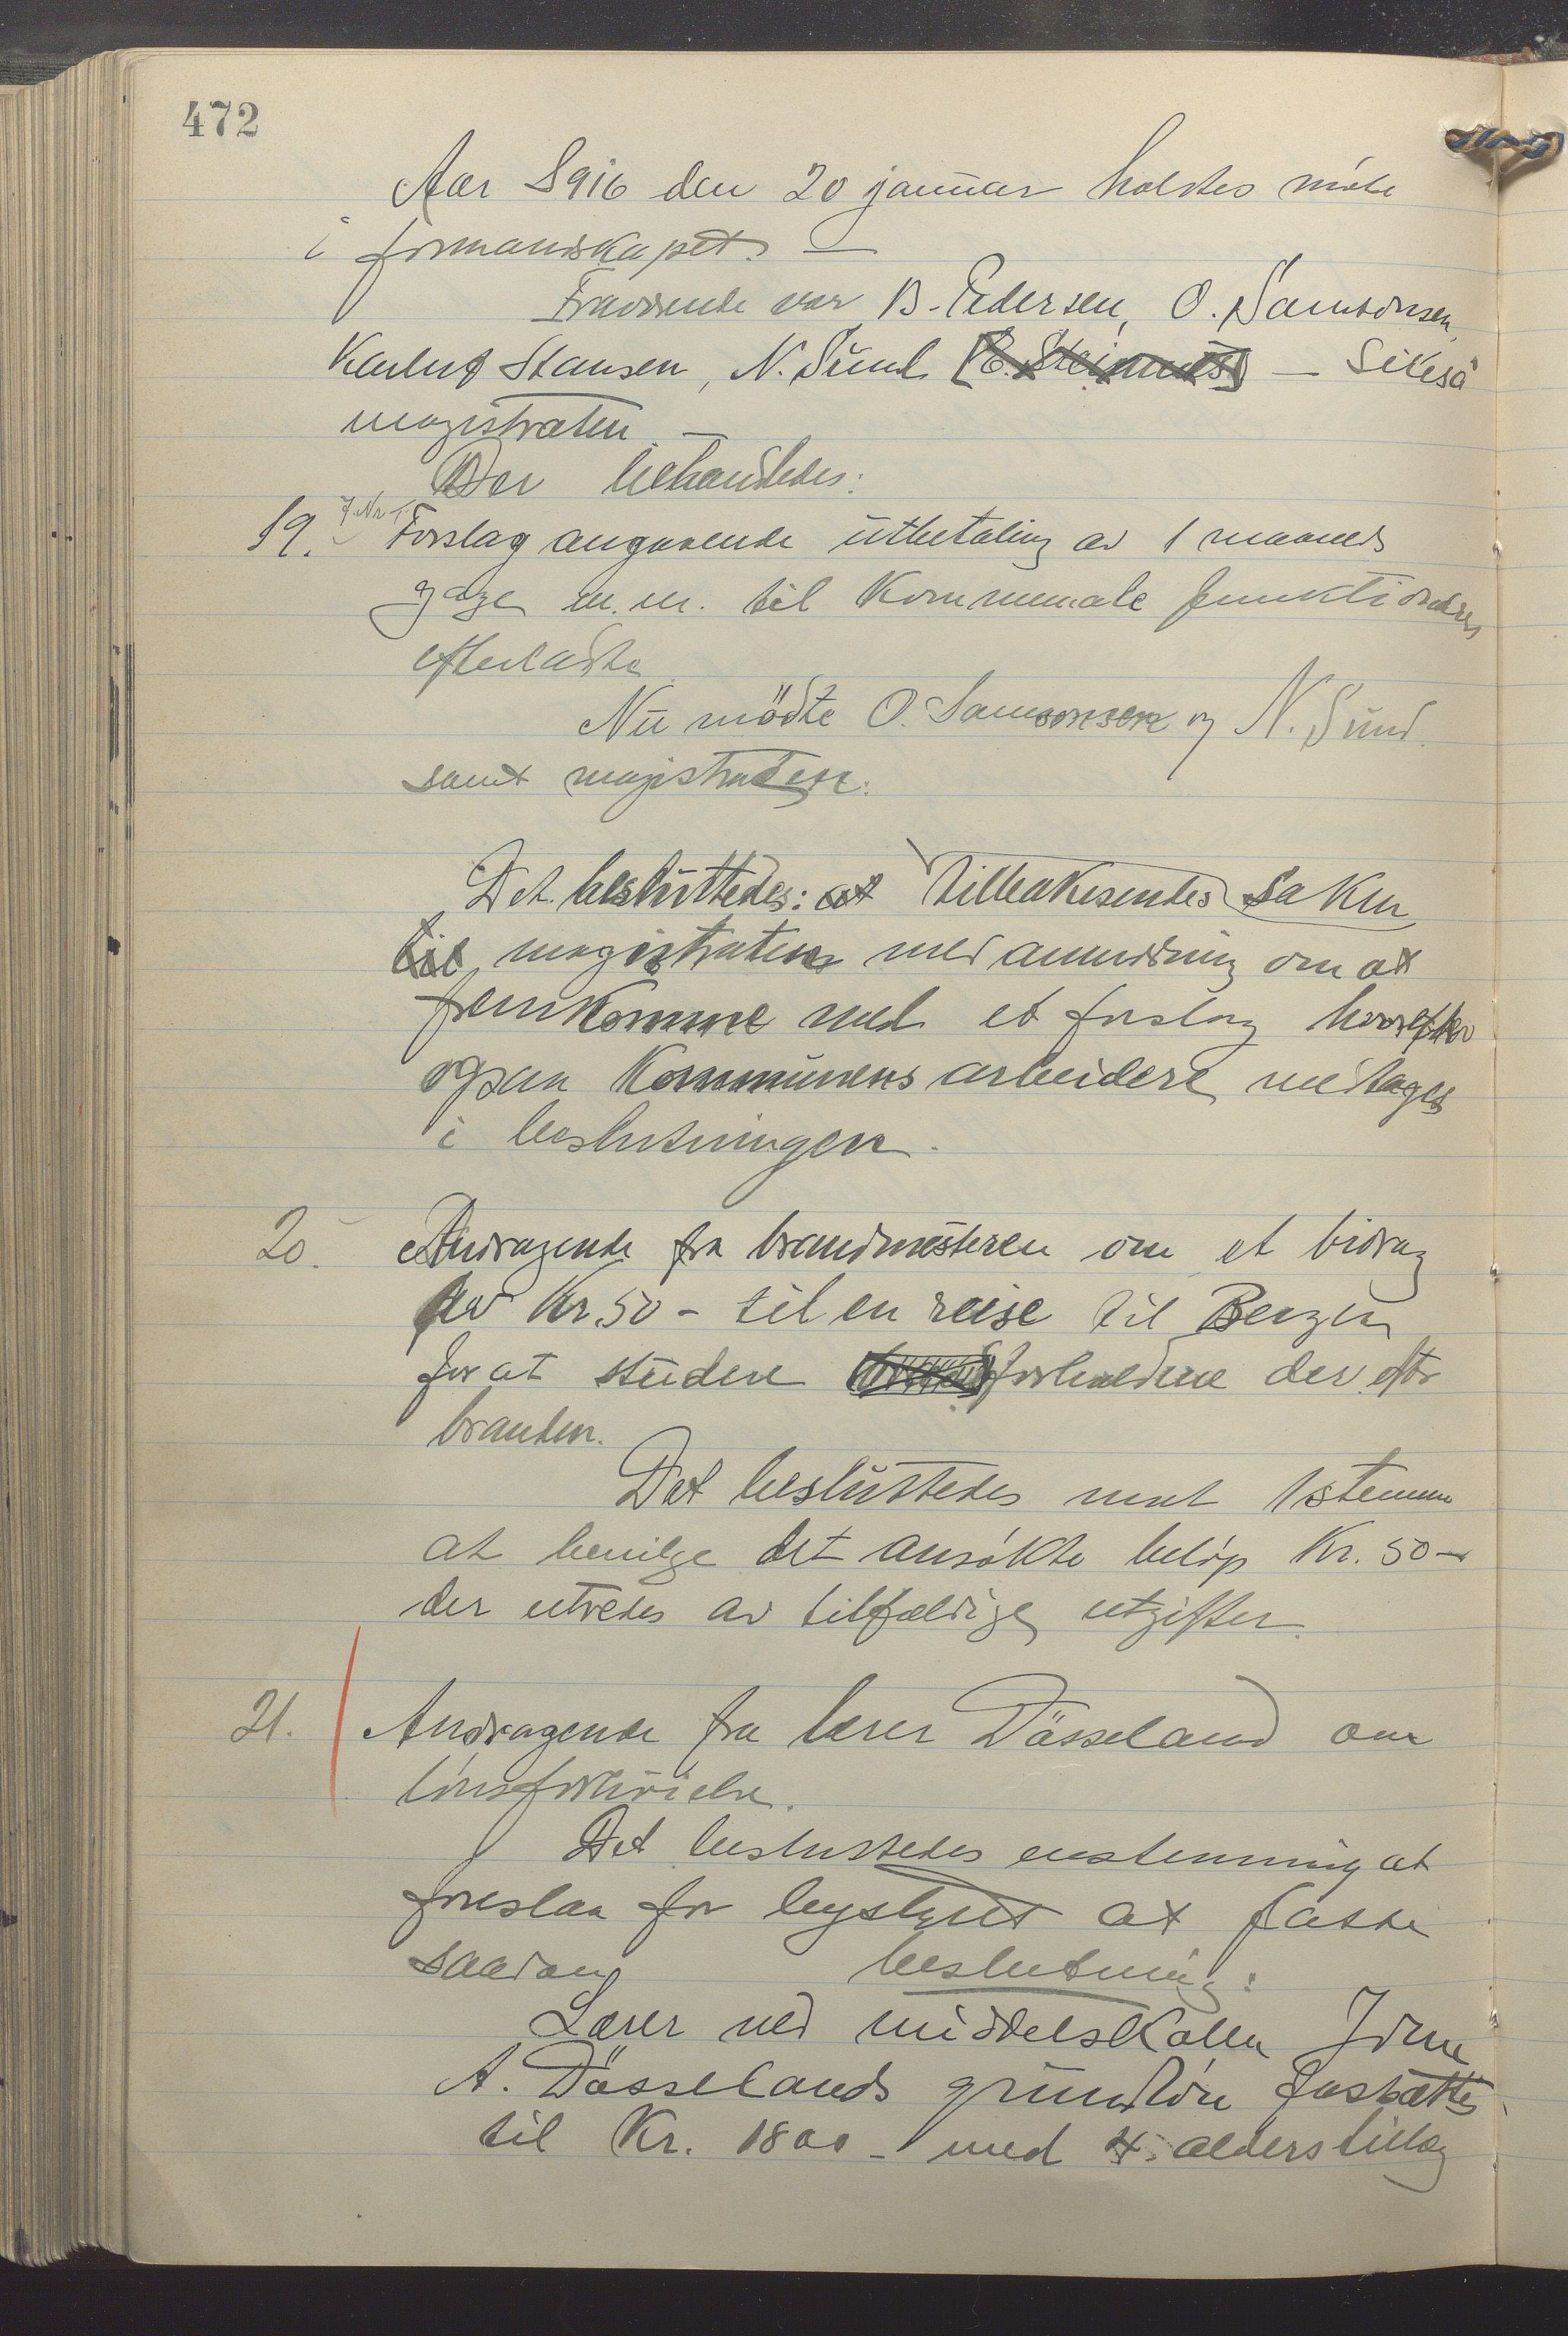 472
Aar 1916 den 20 januar holdtes møte
i formandskapet. —
Fraværende var B. Pedersen, O. Samsonsen,
Hansen, N. Sund — Likeså
magistraten. —
Der behandledes:
19. J.Nr Forslag angaaende utbetaling av 1 maaneds
gage m.m. til kommunale funktionærers
efterladte.
Nu mødte O. Samsonsen og N. Sund
samt magistraten.
Det besluttedes: at tilbakesendes saken
til magistraten med anmodning om at
fremkomme med et forslag hvorefter
ogsaa kommunens arbeidere medtages
i beslutningen.
20. Andragende fra brandmesteren om et bidrag
av Kr. 50 - til en reise til Bergen
for at studere forholdene der efter
branden.
Det besluttedes mot 1 stemme
at bevilge det ansøkte beløp Kr. 50 -
der utredes av tilfældige utgifter.
21. Andragende fra lærer Dåsseland om
lønsforhøielse.
Det besluttedes enstemmig at
foreslaa for bystyret at fatte
saadan beslutning:
Lærer ved middelskolen
A. Dåsselands grundløn fastsættes
til Kr. 1800 - med 4 alderstillæg